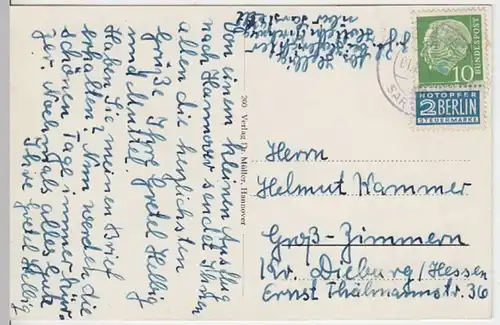 Von einem kleinen Ausflug
nach Hannover sendet Ihnen
allen die herzlichsten
Grüße Ihre Gretel Helbig
und Mutter.
Haben Sie meinen Brief
erhalten? Nun werden die
schönen Tage immer kür-
zer. Nochmals alles Gute
Ihre Gretel Helbig
Abs. Helbig
über
260 Verlag Dr. Müller, Hannover
DEUTSCHE BUNDESPOST
10
NOTOPFER
2 BERLIN
STEUERMARKE
SAR
Herrn
Helmut Wammer
Groß-Zimmern
Kr. Dieburg/Hessen
Ernst Thälmannstr. 36